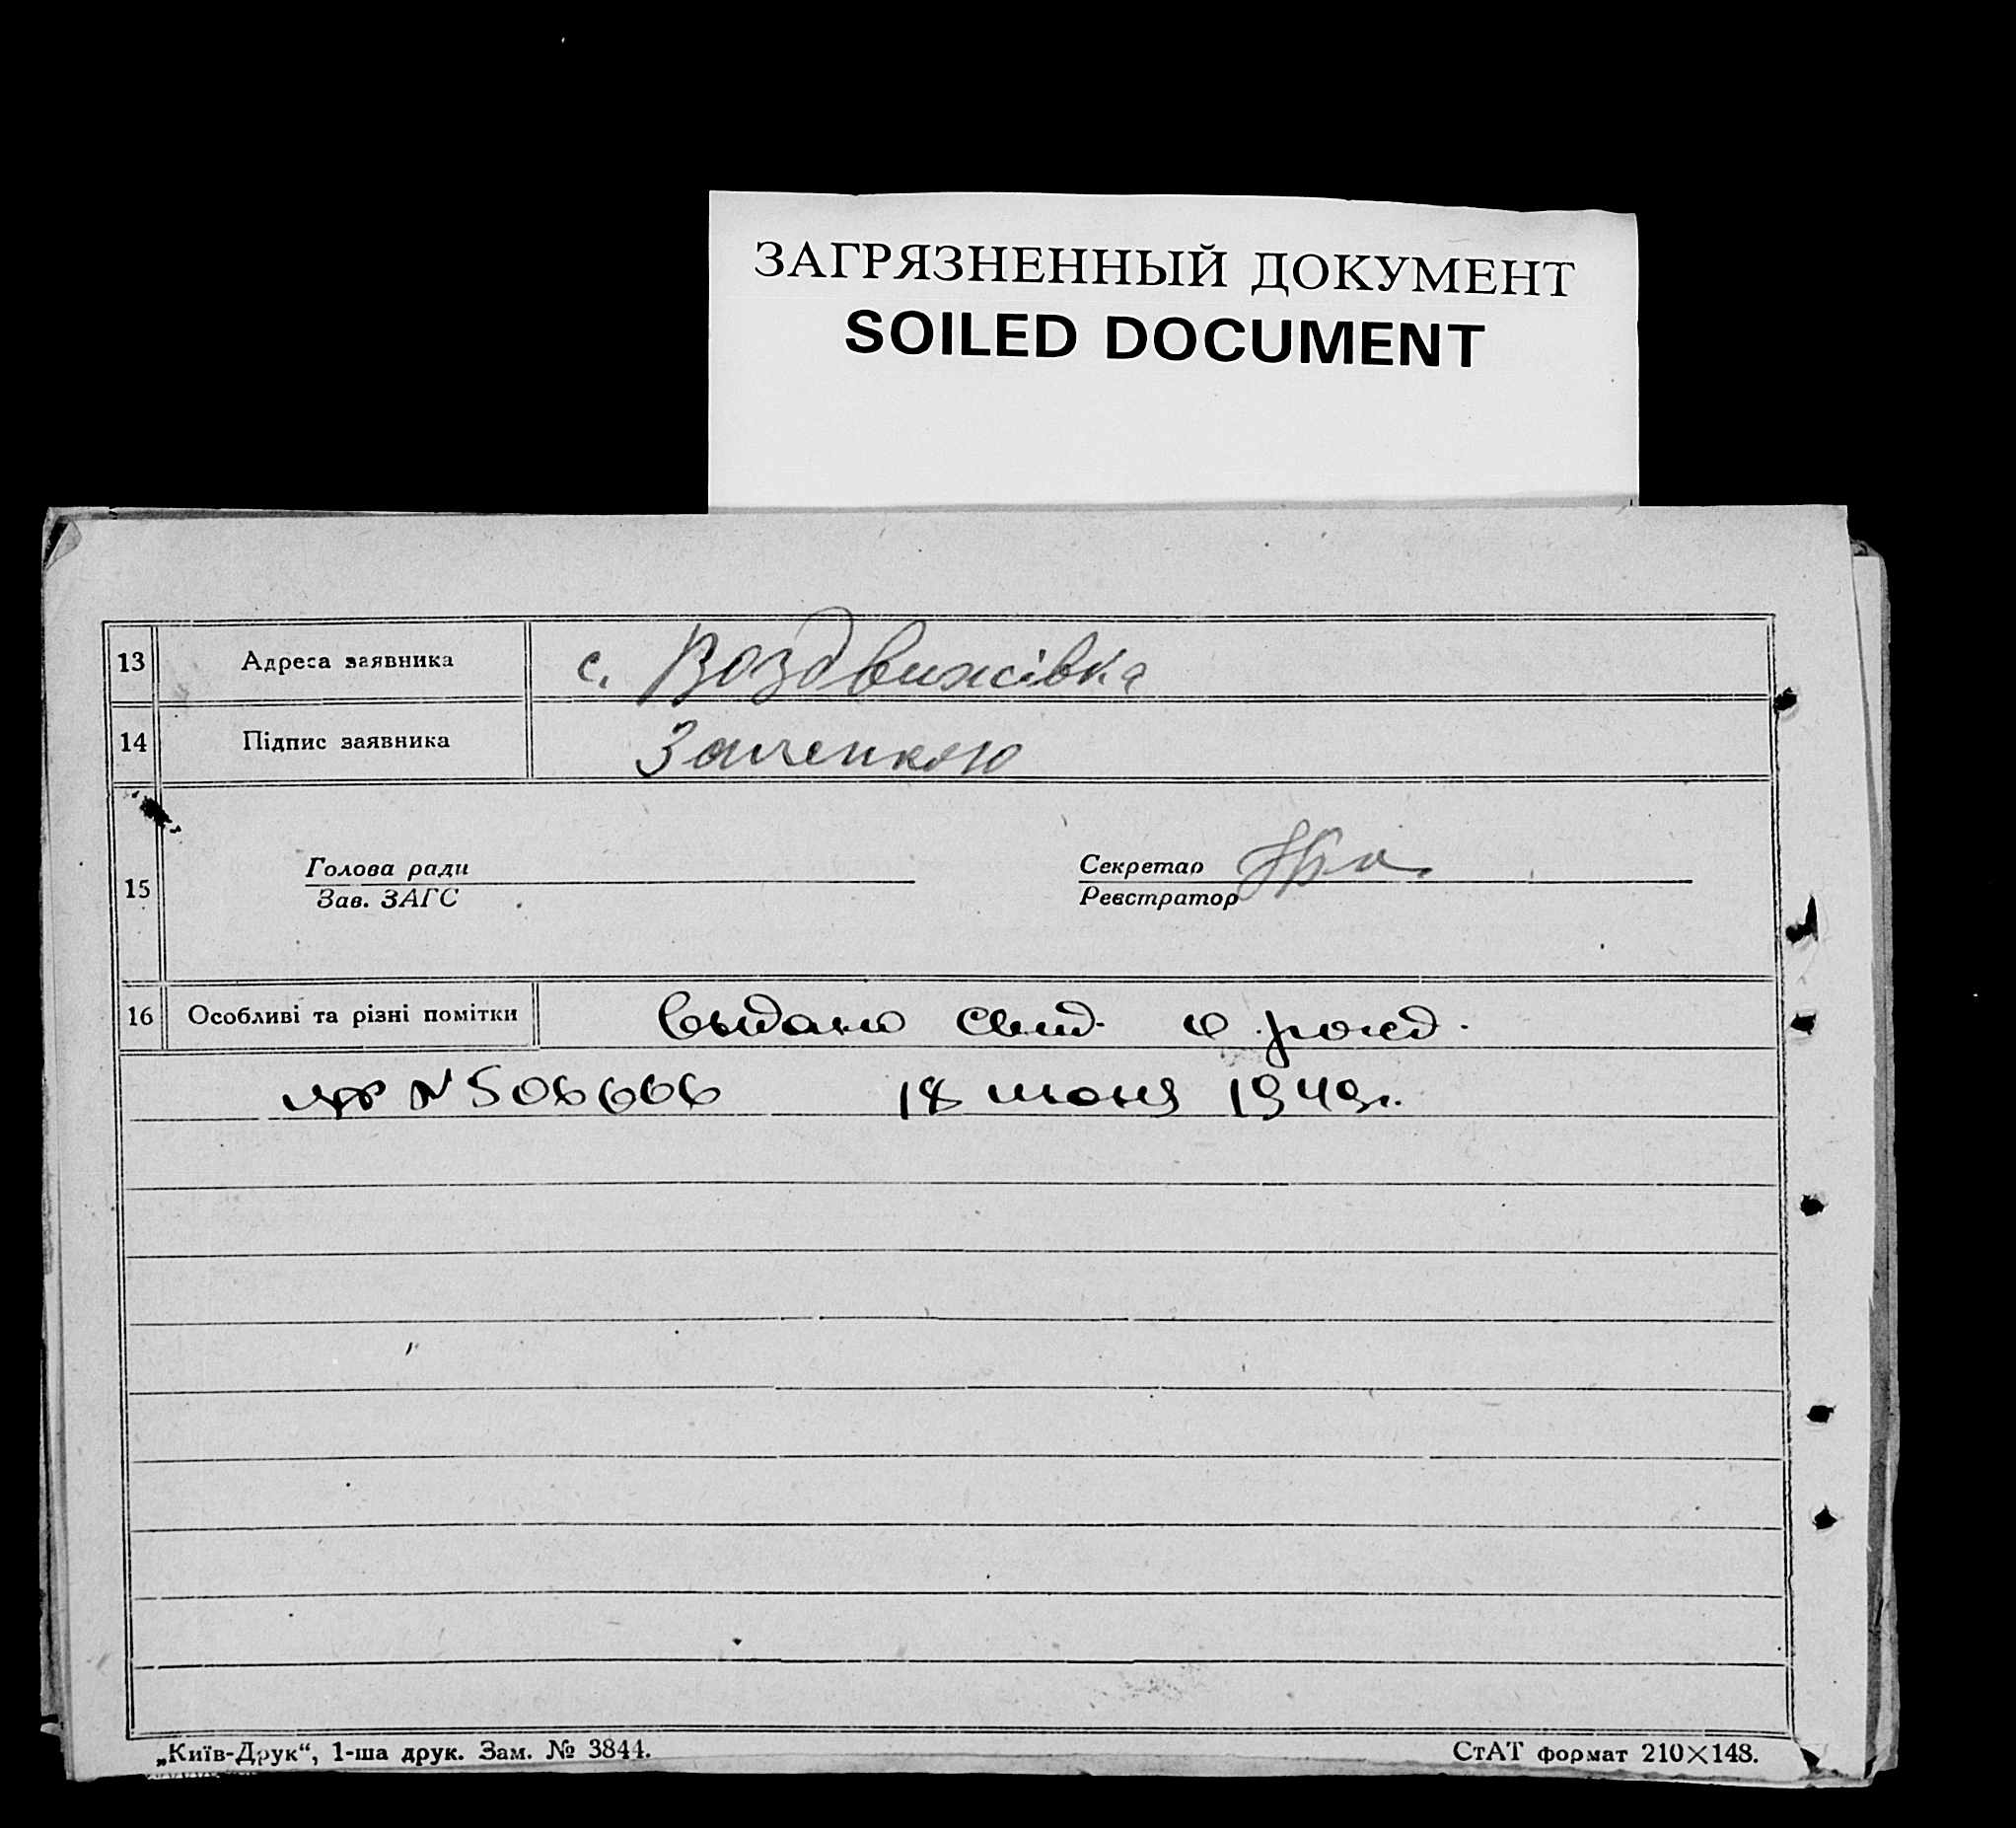 ЗАГРЯЗНЕННЫЙ ДОКУМЕНТ
SOILED DOCUMENT
13 Адреса заявника с. Воздвижівка
14 Підпис заявника
15 Голова ради Секретар
Зав. ЗАГС Реєстратор
16 Особливі та різні помітки выдано свид. о рожд.
N 506606 18 июня 1949г.
„Київ-Друк“, 1-ша друк. Зам. № 3844. СтАТ формат 210×148.